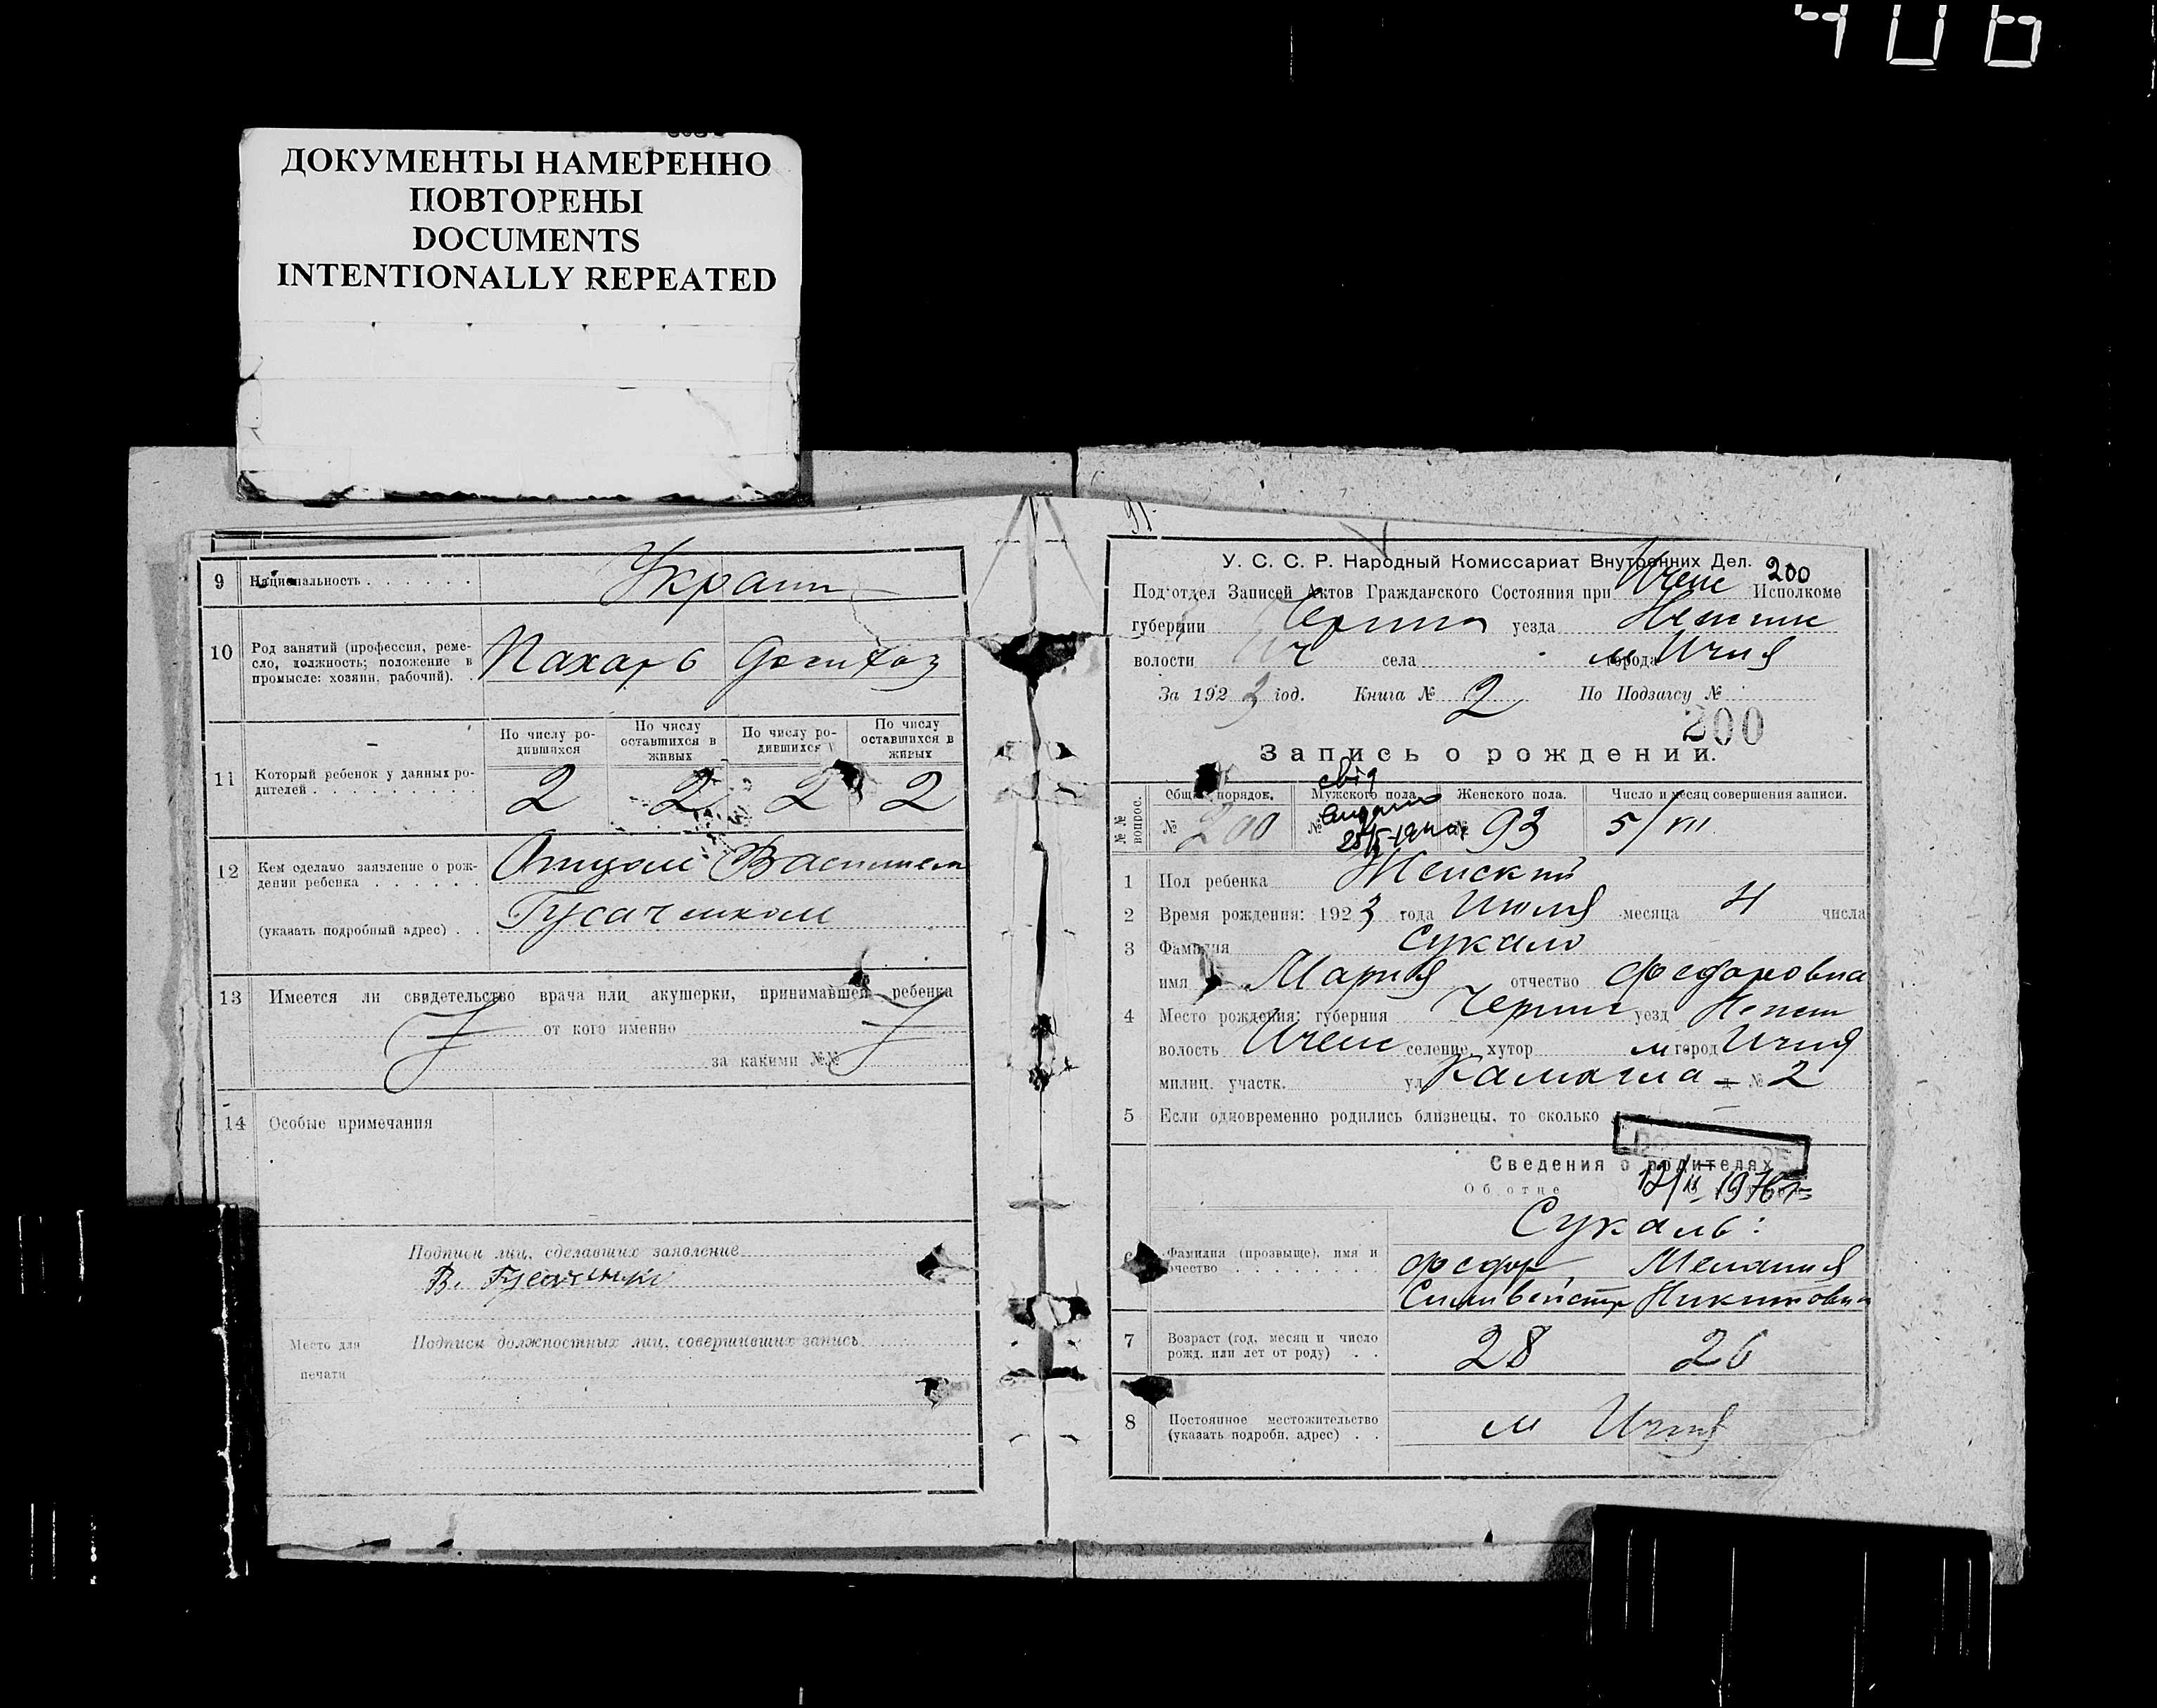 406
ДОКУМЕНТЫ НАМЕРЕННО
ПОВТОРЕНЫ
DOCUMENTS
INTENTIONALLY REPEATED
9 Национальность . . . . . . Украин
10 Род занятий (профессия, реме-
сло, должность; положение в
промысле: хозяин, рабочий). . Пахарь домхоз
11 Который ребенок у данных ро-
дителей . . . . . . . . .
По числу ро-
дившихся
По числу
оставшихся в
живых
По числу ро-
дившихся
По числу
оставшихся в
живых
2 2 2 2
12 Кем сделано заявление о рож-
дении ребенка . . . . . .
(указать подробный адрес) . . Гусаченком
13 Имеется ли свидетельство врача или акушерки, принимавшей ребенка
от кого именно
за какими №№
14 Особые примечания
Подписи лиц, сделавших заявление
Место для
печати
Подписи должностных лиц, совершивших запись
У. С. С. Р. Народный Комиссариат Внутренних Дел. 200
Под'отдел Записей Актов Гражданского Состояния при Ичен Исполкоме
губернии Черниг уезда Нежин
волости Ич села м города Ичня
За 1923 год. Книга № 2 По Подзагсу №
200
Запись о рождении.
№№ вопрос.
Общий порядок. Мужского пола. Женского пола. Число и месяц совершения записи.
№ 200 № № 93 5/VII
1 Пол ребенка Женский
2 Время рождения: 1923 года Июля месяца 4 числа
3 Фамилия Сукало
имя Мария отчество Федоровна
4 Место рождения: губерния Черниг уезд Нежин
волость Ичен селение, хутор м город Ичня
милиц. участк. ул д № 2
5 Если одновременно родились близнецы, то сколько —
Сведения о родителях
Об отце
Сукаль:
6 Фамилия (прозвыще), имя и
отчество . . . . . . . .
Федор Мелания
Сильвестр Никитовна
7 Возраст (год, месяц и число
рожд. или лет от роду) . . 28 26
8 Постоянное местожительство
(указать подробн. адрес) . . м Ичня